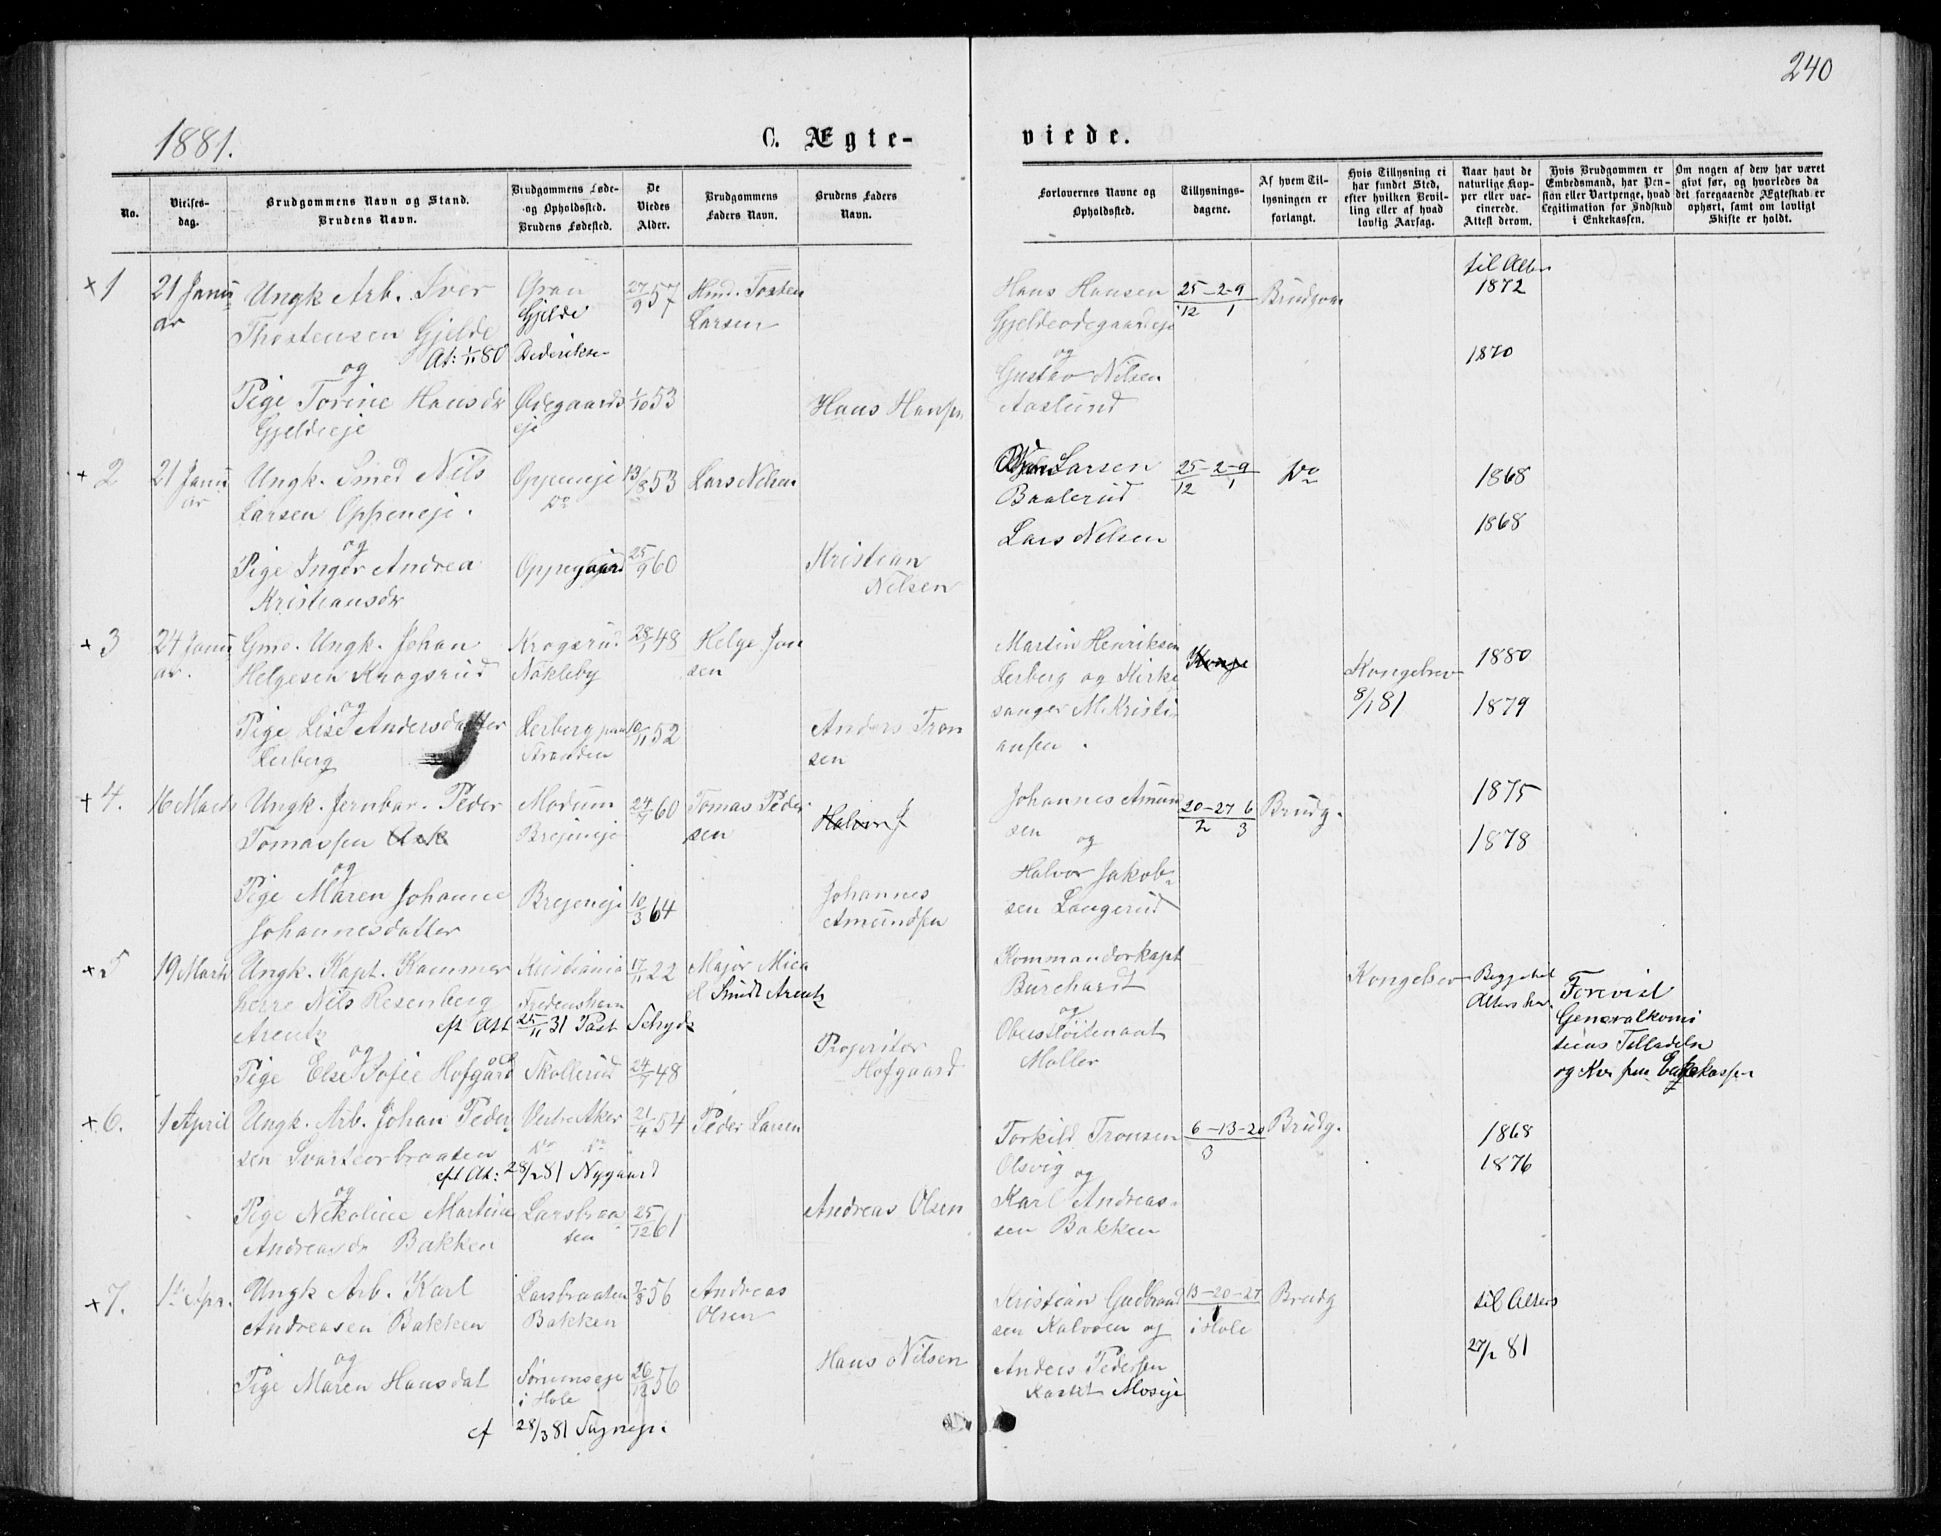 240
1881.
C. Ægte-
viede.
No.
Vielses-
dag.
Brudgommens Navn og Stand.
Brudens Navn.
Brudgommens Føde-
og Opholdssted.
Brudens Fødested.
De
Viedes
Alder.
Brudgommens
Faders Navn.
Brudens Faders
Navn.
Forlovernes Navne og
Opholdssted.
Tillysnings-
dagene.
Af hvem Til-
lysningen er
forlangt.
Hvis Tillysning ei
har fundet Sted,
efter hvilken Bevil-
ling eller af hvad
lovlig Aarsag.
Naar havt de
naturlige Kop-
per eller vac-
cinerede.
Attest derom.
Hvis Brudgommen er
Embedsmand, har Pen-
sion eller Vartpenge, hvad
Legitimation for Indskud
i Enkekassen.
Om nogen af dem har været
gift før, og hvorledes da
det foregaaende Ægteskab er
ophørt, samt om lovligt
Skifte er holdt.
+ 1
21 Janu
ar
Ungk Arb. Iver
Thostensen Gjelde
At: 1/11 80
og
Pige Torine Hansdr
Gjeldeeje
Gran
Gjelde
Dederikse
Ødegaards
eje
27/9 57
1/10 53
Tosten
Larsen
Hans Hansen
Hans Hansen
Gjeldeødegaardeje
og
Gustav Nilsen
Aaslund
25-2-9
12 1
Brudgom
til Alter
1872
1870
+ 2
21 Janu
ar
Ungk. Smed Nils
Larsen Oppeneje.
og
Pige Inger Andrea
Kristiansdr
Oppeneje
Do
Oppegaard
13/8 53
25/9 60
Lars Nilsen
Kristian
Nilsen
Larsen
Baalerud
Lars Nilsen
25-2-9
12 1
Do
1868
1868
+ 3
24 Janu
ar.
Gmd. Ungk. Johan
Helgesen Krogsrud
og
Pige Lise Andersdatter
Lerberg
Krogsrud
Nøkleby
Lerberg paa
Stranden
28/1 48
10/11 52
Helge Jon
sen
Anders Tron
sen
Martin Henriksen
Lerberg og Kirke
sanger M. Kristi
ansen.
Konge
Kongebrev
8/1 81
1880
1879
+ 4.
16 Marts
Ungk. Jernbar. Peder
Tomassen Ask
og
Pige Maren Johanne
Johannesdatter
Modum
Brejeneje
Brejeneje
24/4 60
10/3 64
Tomas Peder
sen
Halvor J
Johannes
Amundsen
Johannes Amund
sen
og
Halvor Jakob-
sen Langerud
20-27 6
2 3
Brudg.
1875
1878
+ 5
19 Marts
Ungk. Kapt. Kammer
herre Nils Rosenberg
Arentz
og
Pige Else Sofie Hofgaard
Kristiania
Fredensham
eft Att 25/11 31 Past Schydz
Skollerud
17/11 22
24/7 48
Major Mica
el Smidt Arentz
Propritær
Hofgaard
Kommandorkapt
Burchardt
og
Oberstløitenant
Møller
Kongebrev
Begge til
Alters her.
Forevist
Generalkomi
siens Tilladelse
og Kv. fra Enkekassen
+ 6.
1 April
Ungk. Arb. Johan Peder
sen Svartorbraaten
eft At: 28/2 81 Nygaard
og
Pige Nikoline Martine
Andreasdr Bakken
Vestre Aker
Do Do
Larsbraa
ten
21/4 54
25/12 61
Peder Larsen
Andreas Olsen
Torkild Tronsen
Olsvig og
Karl Andreas-
sen Bakken
6-13-20
3
Brudg.
1868
1876
+ 7.
1ste Apr.
Ungk Arb. Karl
Andreasen Bakken
og
Pige Maren Hansdat
Larsbraaten
Bakken
i Hole
cf 28/3 81
7/8 56
26/12 56
Andreas
Olsen
Hans Nilsen
Kristian Gudbrand
sen Kalvøen og
Anders Pedersen
Moseje
13-20-27
i Hole
Brudg
til Alters
27/2 81